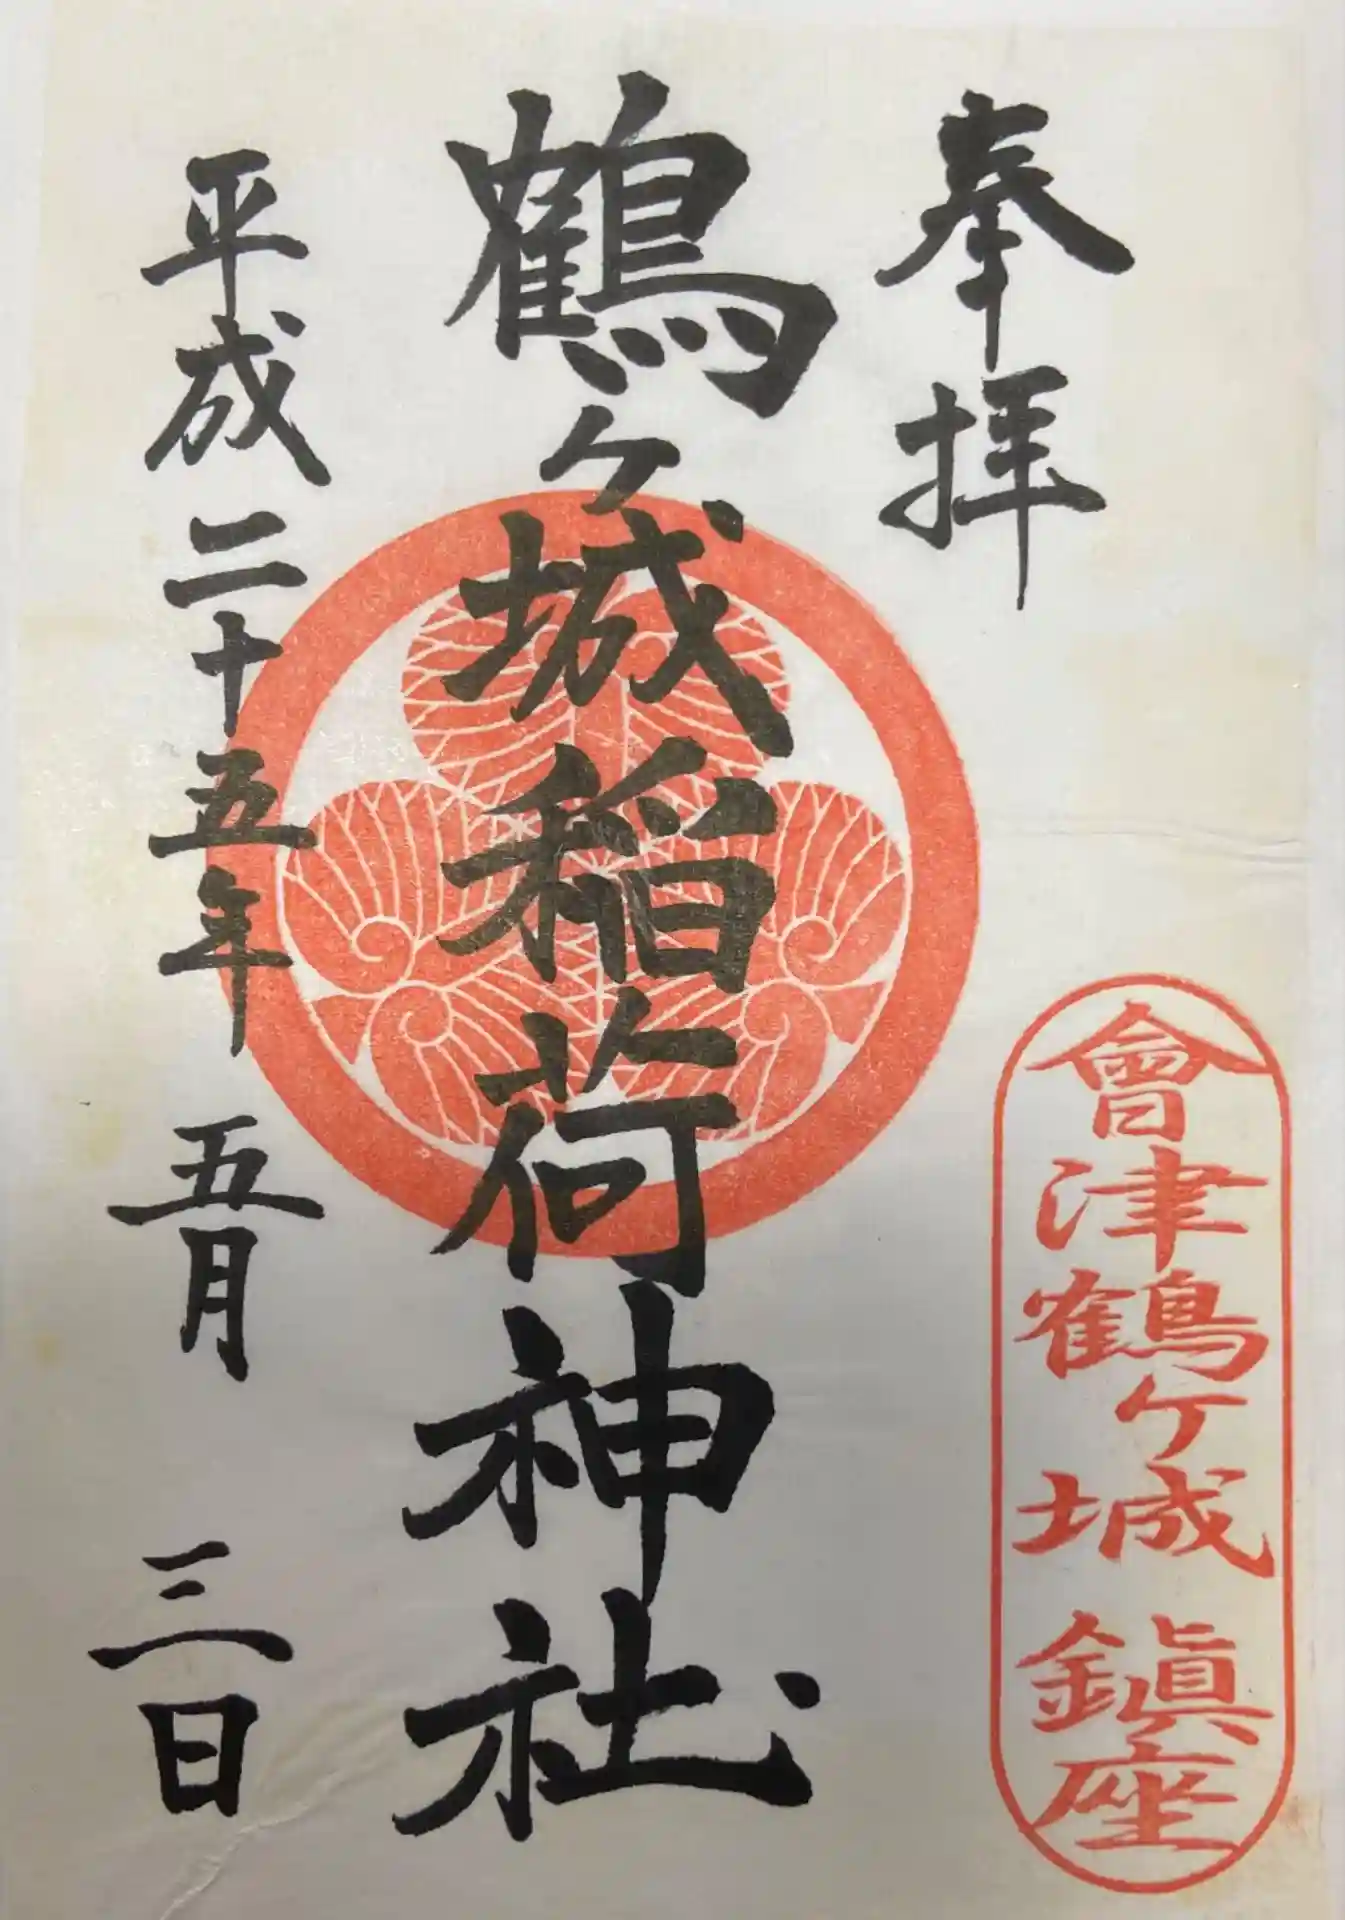 奉拝
會津鶴ケ城鎮座
鶴ケ城稲荷神社
平成二十五年五月三日